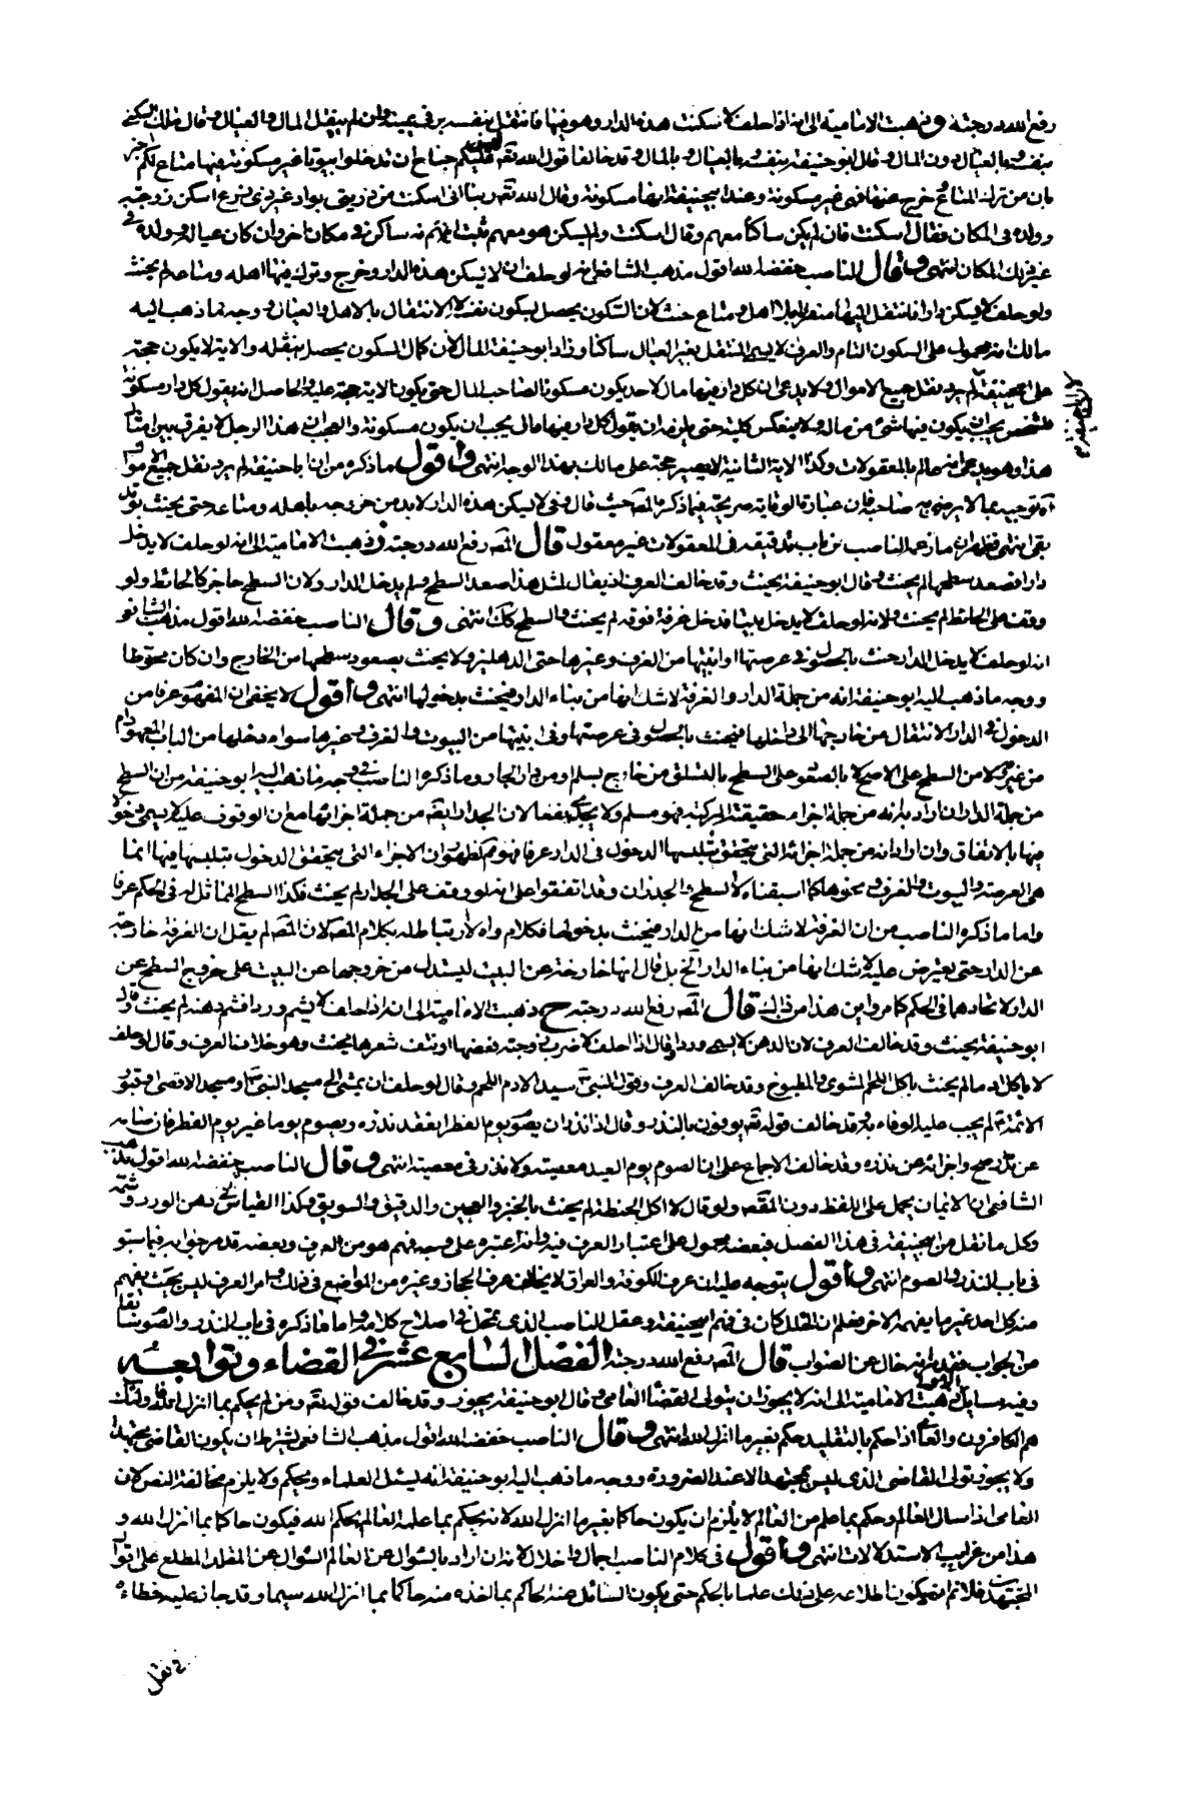 رفع الله درجته و ذهبت الامامية الى انه اذا حلف لا سكنت هذه الدار وهو فيها فانتقل بنفسه بر في يمينه وان لم ينقل المال والعيال وقال مالك السكنى
بنفسه وبالعيال دون المال وقال ابو حنيفة بنفسه وبالعيال وبالمال وقد خالفا قول الله تعه ليس عليكم جناح ان تدخلوا بيوتا غير مسكونة فيها متاع لكم اخبر
بان من ترك المتاع وخرج عنها فهى غير مسكونة وعند ابيحنيفة انها مسكونة وقال الله تعه ربنا انى اسكنت من ذريتى بواد غير ذى زرع اسكن زوجته
وولده فى المكان فقال اسكنت فان لم يكن ساكنا معهم وقال اسكنت ولم يسكن هو معهم ثبت انه ساكن فى مكان اخر وان كان عياله وولده فى
غير ذلك المكان انتهى وقال الناصب خفضه الله اقول مذهب الشافعى انه لو حلف ان لا يسكن هذه الدار وخرج وترك فيها اهله ومتاعه لم يحنث
ولو حلف لا يسكن دارا فانتقل اليها منفردا بلا اهل ومتاع حنث لان السكون يحصل بسكون نفسه لا الانتقال بالاهل والعيال ووجه ما ذهب اليه
مالك انه محمول على السكون التام والعرف لا يسمى المنتقل بغير العيال ساكنا وزاد ابو حنيفة المال لان كمال السكون يحصل بنقله والاية لا يكون حجة
على ابيحنيفة لم يرد نقل جميع الاموال ولا يدعى ان كل دار فيها مال لاحد يكون مسكونا لصاحب المال حتى يكون الاية حجة عليه والحاصل انه يقول كل دار مسكونة
لشخص يجب ان يكون فيها شئ من ماله ولا ينعكس كلية حتى يلزمه ان يقول كل دار فيها مال يجب ان يكون مسكونة والعجب ان هذا الرجل لا يفرق بين امثال
هذا وهو يدعى انه عالم بالمعقولات وكذا الاية الثانية لا يصير حجة على مالك بهذا الوجه انتهى واقول ما ذكره من ان ابا حنيفة لم يرد نقل جميع الاموال
اه توجيه بما لا يرضى به صاحبه فان عبارة الوقاية صريحة فيما ذكره المصه حيث قال وفى لا يسكن هذه الدار لابد من خروجه باهله ومتاعه حتى يحنث بوتد
بقى انتهى فظهر ان ما زعمه الناصب من باب تدقيقه فى المعقولات غير معقول قال المصه رفع الله درجته ز ذهبت الامامية الى انه لو حلف لا يدخل
دارا فصعد سطحها لم يحنث وقال ابو حنيفة يحنث وقد خالف العرف اذ يقال لمثل هذا صعد السطح ولم يدخل الدار ولان السطح حاجز كالحائط ولو
وقف على الحائط لم يحنث ولانه لو حلف لا يدخل بيتا فدخل غرفة فوقه لم يحنث والسطح كك انتهى وقال الناصب خفضه الله اقول مذهب الشافعى
انه لو حلف لا يدخل الدار حنث بالحصول فى عرصتها او ابنيتها من الغرف وغيرها حتى الدهليز ولا يحنث بصعود سطحها من الخارج وان كان محوطا
ووجه ما ذهب اليه ابو حنيفة انه من جملة الدار والغرفة لا شك انها من بناء الدار فيحنث بدخولها انتهى واقول لا يخفى ان المفهوم عرفا من
الدخول فى الدار الانتقال من خارجها الى داخلها فيحنث بالحصول فى عرصتها وفى ابنيتها من البيوت والغرف وغيرها سواء دخلها من الباب المعهود ام
من غيره كالامن السطح على الاصح لا بالصعود على السطح بالتسلق من خارج بسلم او من دار الجار وما ذكره الناصب فى وجه ما ذهب اليه ابو حنيفة من ان السطح
من جملة الدار ان اراد به انه من جملة اجزاء حقيقته المركبة فهو مسلم ولا يجديه نفعا لان الجدار ايضه من جملة اجزائها مع ان الوقوف عليه لا يسمى دخولا
فيها بالاتفاق وان اراد انه من جملة اجزائه التى يتحقق بتلبسها الدخول فى الدار عرفا فهو مم لظهور ان الاجزاء التى يتحقق الدخول بتلبسها فيها انما
هى العرصة والبيوت والغرف ونحوها كما اسبقناه لا السطح والجدران وقد اتفقوا على انه لو وقف على الجدار لم يحنث فكذا السطح المماثل له فى الحكم عرفا
واما ما ذكره الناصب من ان الغرفة لا شك انها من الدار فيحنث بدخولها فكلام واه لا ارتباط له بكلام المصه لان المصه لم يقل ان الغرفة خارجة
عن الدار حتى يعترض عليه لا شك انها من بناء الدار الخ بل قال انها خارجة عن البيت ليستدل من خروجها عن البيت على خروج السطح عن
الدار لاتحادهما فى الحكم كما مر واين هذا من ذاك قال المصه رفع الله درجته ح ذهبت الامامية الى انه اذا حلف لا يشم وردا فشم دهنه لم يحنث وقال
ابو حنيفة يحنث وقد خالف العرف لان الدهن لا يسمى وردا وقال اذا حلف لا ضرب زوجته فعضها او نتف شعرها يحنث وهو خلاف العرف وقال لو حلف
لا ياكل ادما لم يحنث باكل اللحم المشوى والمطبوخ وقد خالف العرف وقول النبى ص سيد الادم اللحم وقال لو حلف ان يمشى الى مسجد النبى ص او مسجد الاقصى او قبور
الائمة ع لم يجب عليه الوفاء به وقد خالف قوله تعه يوفون بالنذر وقال اذا نذر ان يصوم يوم الفطر انعقد نذره ويصوم يوما غير يوم الفطر فان صامه
عن نذره صح واجزائه عن نذره وقد خالف الاجماع على ان الصوم يوم العيد معصية ولا نذر فى معصية انتهى وقال الناصب خفضه الله اقول مذهب
الشافعى ان الايمان يحمل على اللفظ دون المقصد ولو قال لا اكل الحنطة لم يحنث بالخبز والعجين والدقيق والسويق وهكذا القياس فى دهن الورد وشمه
وكل ما نقل من ابيحنيفة فى هذا الفصل فبعضه محمول على اعتبار العرف فيه وانه اعتبره على وجه فهم هو من العرف وبعضه قد مر جوابه فيما سبق
فى باب النذر والصوم انتهى واقول يتوجه عليه ان عرف الكوفة والعراق لا يخالف عرف الحجاز وغيره من المواضع فى ذلك وامر العرف ليس بحيث يفهم
منه كل احد غير ما يفهمه الاخر فعلم ان الخلل كان فى فهم ابيحنيفة وعقل الناصب الذى تمحل فى اصلاح كلامه واما ما ذكره فى باب النذر والصوم سابقا
من الجواب فقد مر انه خال عن الصواب قال المصه رفع الله درجته الفصل السابع عشر فى القضاء وتوابعه
وفيه مسايل الاولى ذهبت الامامية الى انه لا يجوز ان يتولى القضاء العامى وقال ابو حنيفة يجوز وقد خالف قوله تعه ومن لم يحكم بما انزل الله فاولئك
هم الكافرون والعامى اذا حكم بالتقليد حكم بغير ما انزل الله انتهى وقال الناصب خفضه الله اقول مذهب الشافعى يشترط ان يكون القاضى مجتهدا
ولا يجوز تولى القاضى الذى ليس بمجتهد الا عند الضرورة ووجه ما ذهب اليه ابو حنيفة انه يسئل العلماء ويحكم ولا يلزم مخالفة النص لان
العامى اذا سال العالم وحكم بما علم من العالم لا يلزم ان يكون حاكما بغير ما انزل الله لانه يحكم بما علمه العالم بحكم الله فيكون حاكما بما انزل الله و
هذا من غرايب الاستدلالات انتهى واقول فى كلام الناصب اجمال واخلال لانه ان اراد بالسؤال عن العالم السؤال عن المقلد المطلع على اقوال
المجتهدين فلا نم انه يكون اطلاعه على ذلك علما بالحكم حتى يكون السائل عنه الحاكم بما اخذه منه حاكما بما انزل الله سيما وقد جاز عليه خطاءه
فى نقل